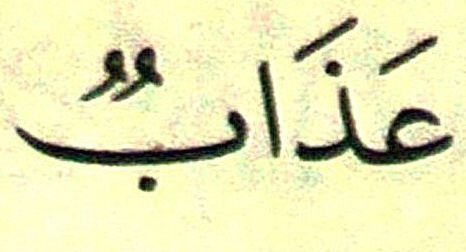 عَذَابٌ